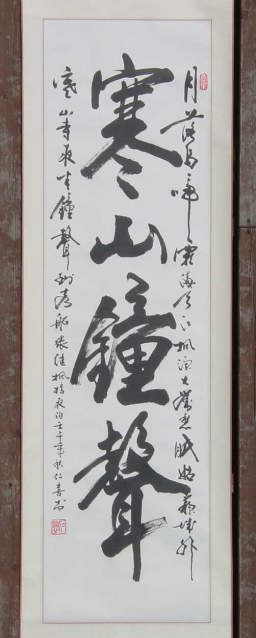 月落烏啼霜滿天江楓漁火對愁眠姑蘇城外
寒山鐘聲
寒山寺夜半鐘聲到客船張継楓橋夜泊壬午年秋